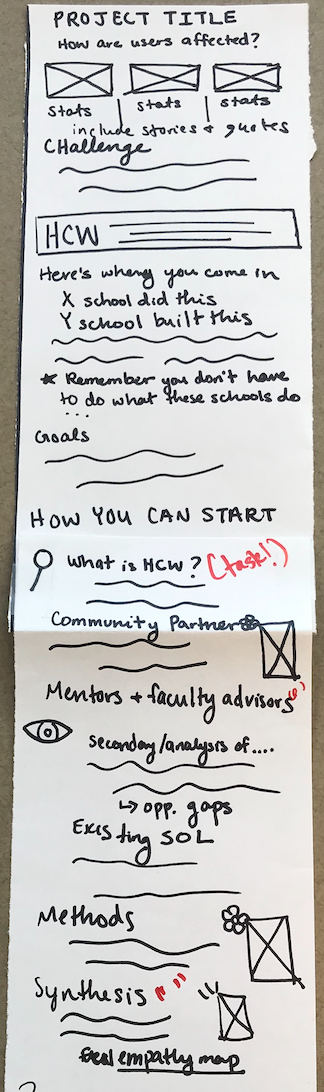 PROJECT TITLE
How are users affected?
stats stats stats
include stories + quotes
CHallenge
HCW
Here's where you come in
X school did this
Y school built this
* Remember you don't have
to do what these schools do
...
Goals
HOW YOU CAN START
What is HCW? (task!)
Community Partner
Mentors + faculty advisors
Secondary/analysis of....
↳ opp. gaps
Existing SOL
Methods
Synthesis
empathy map